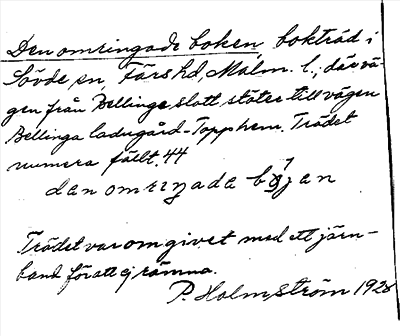 Den omringade boken, bokträd i
Sövde sn, Färs hd, Malm. l.; där vä-
gen från Bellinga slott stöter till vägen
Bellinga ladugård-Topphem. Trädet
numera fällt. 44
dan omreŋada bǫjan
Trädet var omgivet med ett järn-
band för att ej rämna.
P. Holmström 1928